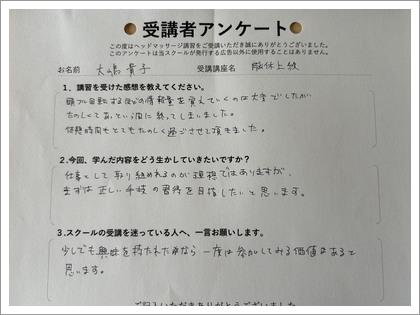 受講者アンケート
この度はヘッドマッサージ講習をご受講いただき誠にありがとうございました。
このアンケートは当スクールが発行する広告以外に使用することはありません。
お名前 大嶋 貴子 受講講座名 肢体上級
1．講習を受けた感想を教えてください。
頭フル回転するほどの情報量を覚えていくのは大変でしたが
たのしくてあっという間に終ってしまいました。
休憩時間もとても楽しく過ごさせて頂きました。
2.今回、学んだ内容をどう生かしていきたいですか？
仕事として取り組めれるのが理想ではありますが、
まずは正しい手技の習得を目指したいと思います。
3.スクールの受講を迷っている人へ、一言お願いします。
少しでも興味を持たれたなら一度は参加してみる価値はあると
思います。
ご記入いただきありがとうございました